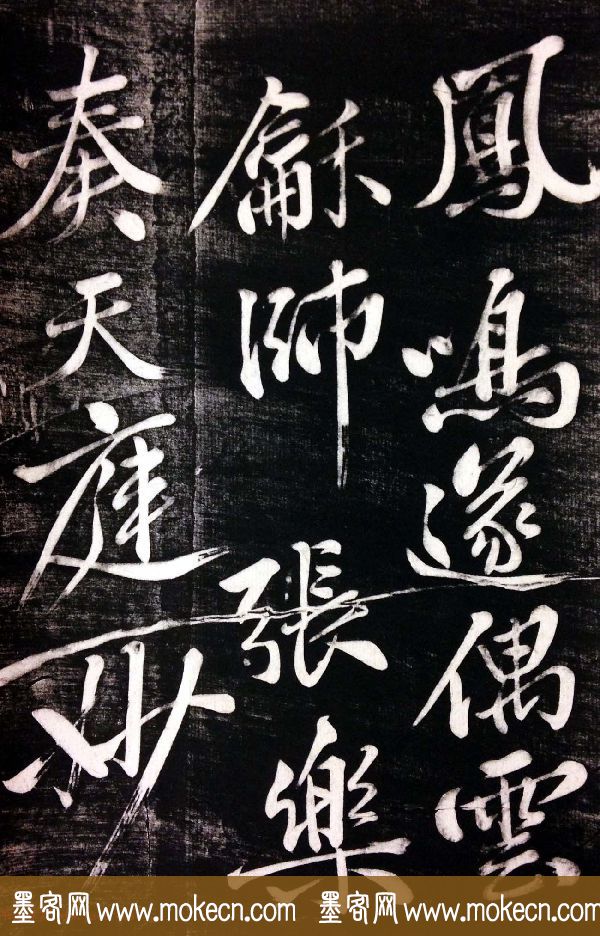 鳳鳴遂偶雲
龢師張樂
奏天庭妙
墨客网 www.mokecn.com 墨客网 www.mokecn.com